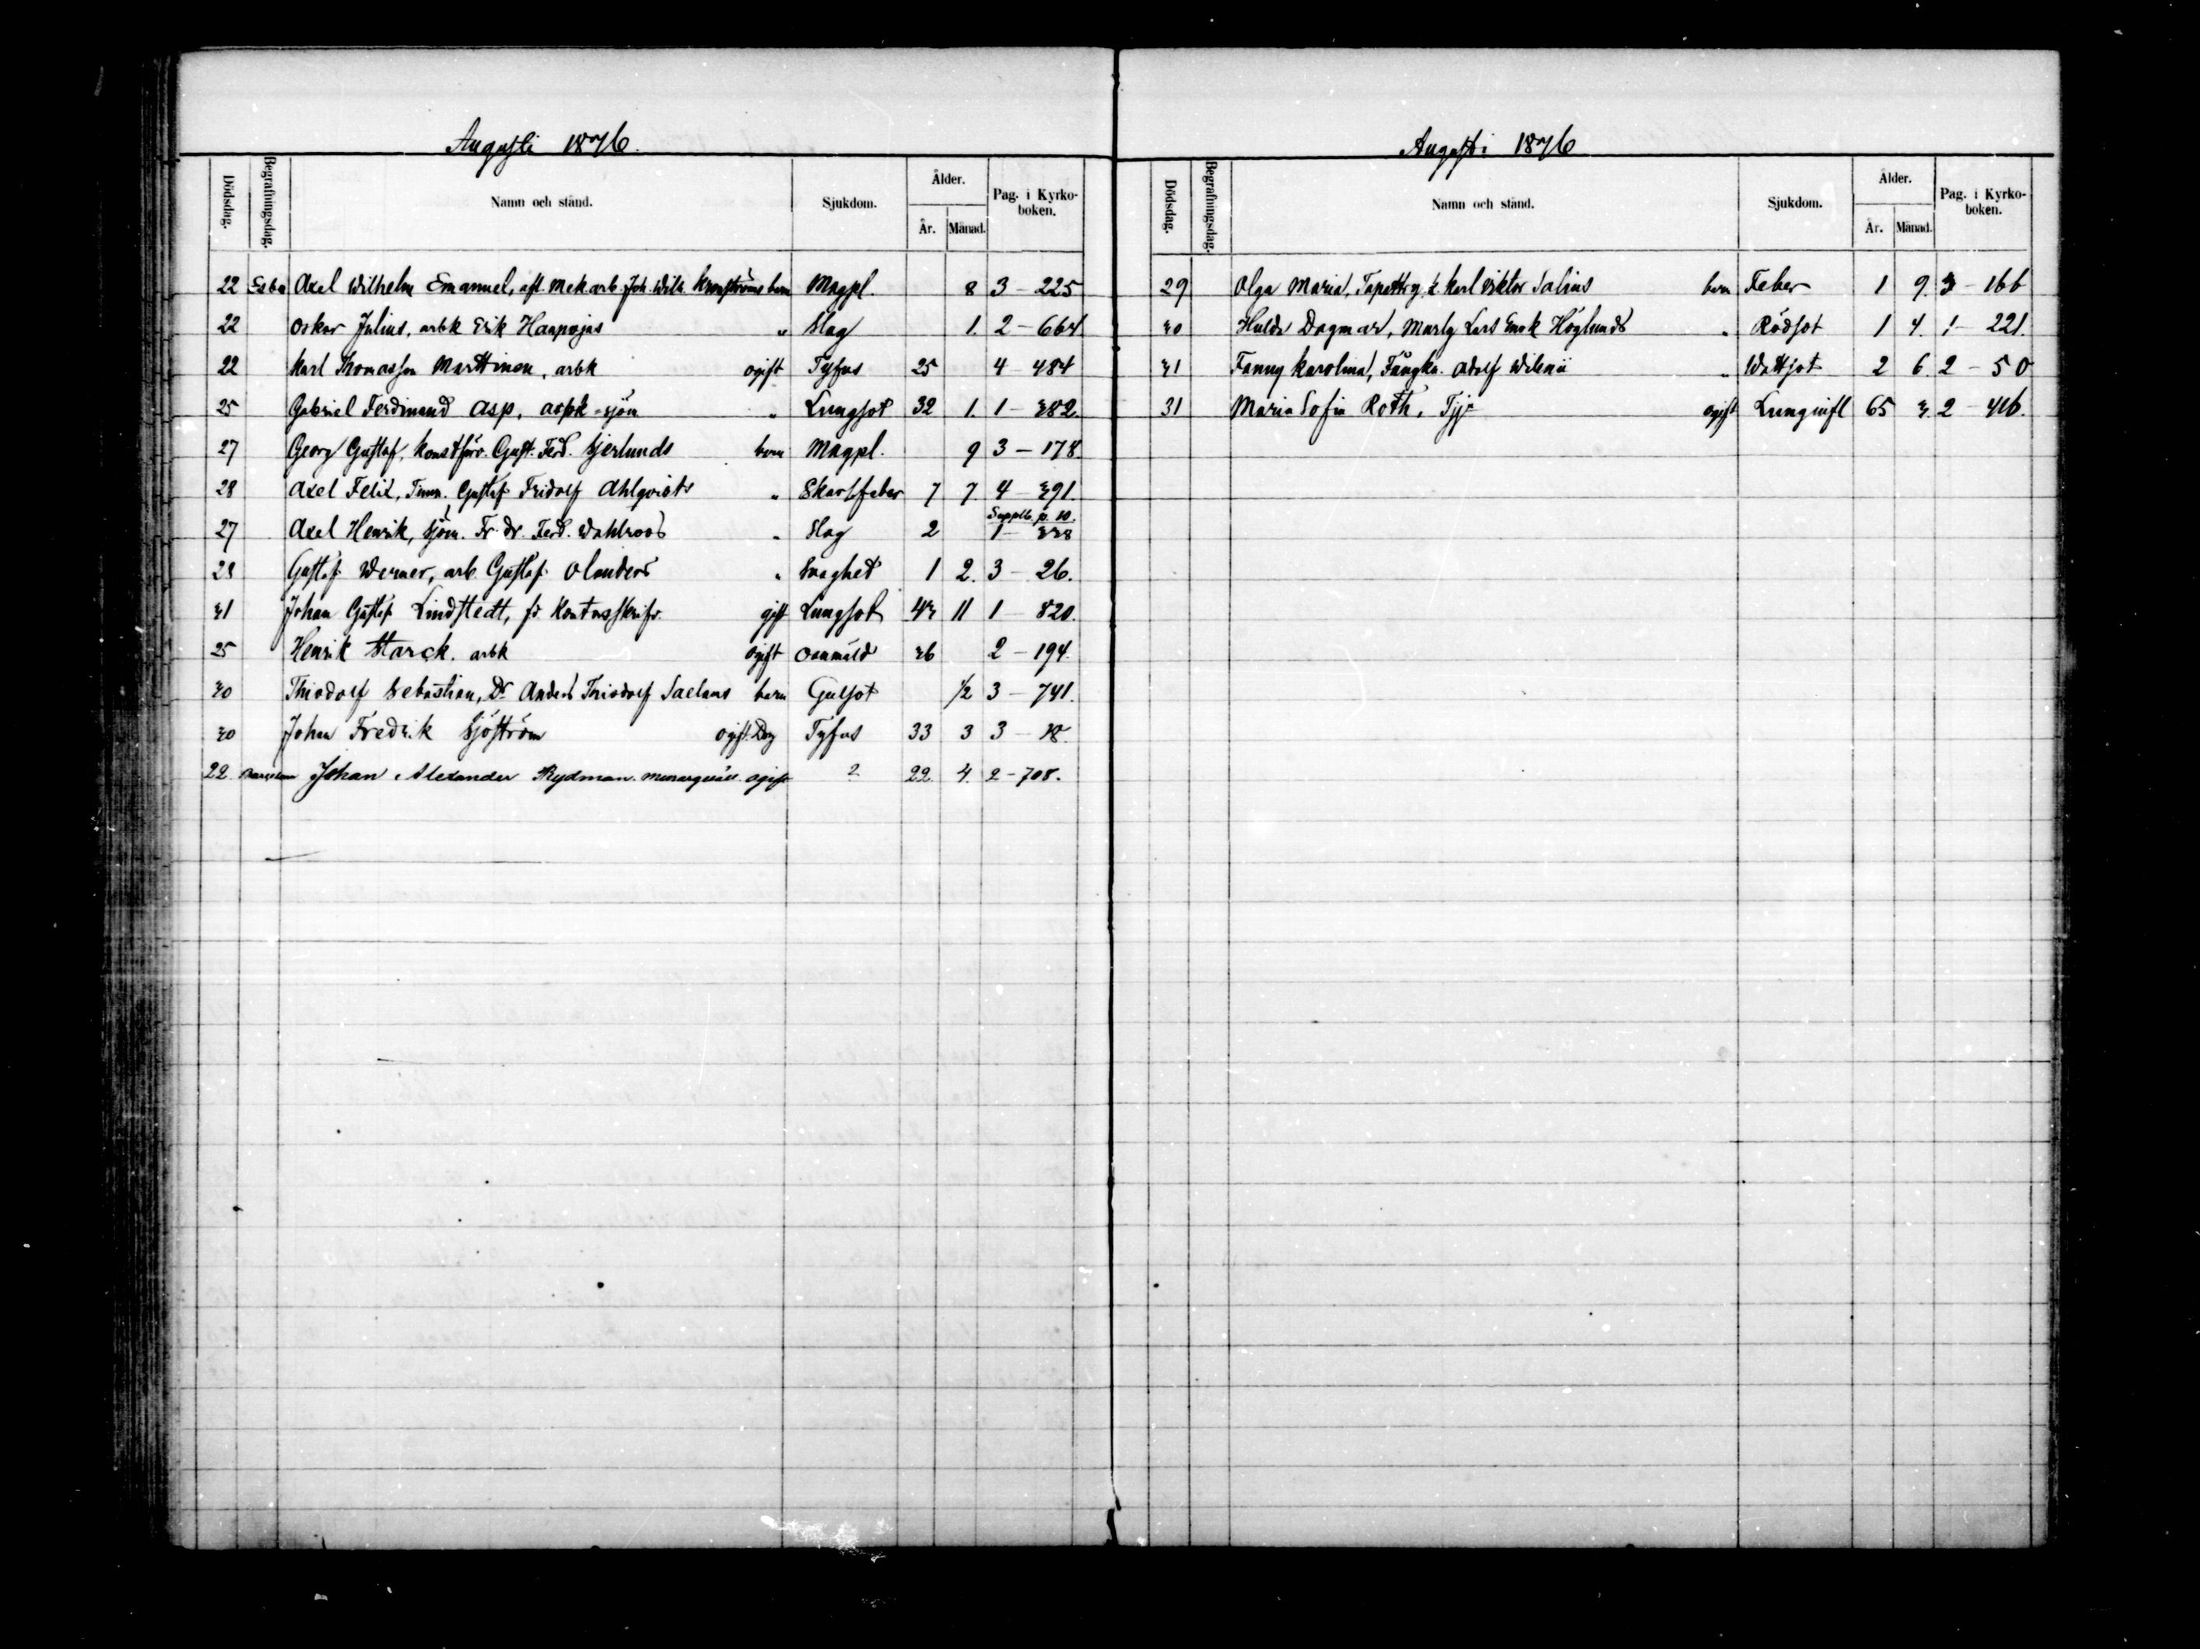 Augusti 1876.
Dödsdag. Begrafningsdag. Namn och stånd. Sjukdom. Ålder. År. Månad. Pag. i Kyrkoboken.
22 Esbo Axel Wilhelm Emanuel, afl. Mek.arb. Joh. Wilh. Kronströms barn Magpl. 8 3 - 225
22 Oskar Julius, arbk Erik Haapojas " Slag 1. 2 - 664
22 Karl Thomasson Marttinen, arbk ogift Tyfus 25 4 - 484
25 Gabriel Ferdinand Asp, sjöm " Lungsot 32 1. 1 - 382.
27 Georg Gustaf, Konstförv. Gust. Ferd. Sjerlunds barn Magpl. 9 3 - 178.
28 Axel Felix, Timm. Gustaf Fridolf Ahlqvists " Skarl.feber 7 7 4 - 391
Supplb. p. 10.
27 Axel Henrik, Sjöm. Fr. Ferd. Wahlroos " Slag 2 1 - 338
28 Gustaf Werner, arb. Gustaf Olanders " Svaghet 1 2. 3 - 26.
31 Johan Gustaf Lindstedt, fd Kontorsskrifv. gift Lungsot 43 11 1 - 820.
25 Henrik Starck. arbk ogift Oanmäld 36 2 - 194.
30 Thiodolf Sebastian, Dr Anders Thiodolf Saelans barn Gulsot 1/2 3 - 741.
30 Johan Fredrik Sjöström ogift Tyfus 33 3 3 - 18.
22 Johan Alexander Rydman. ogift ? 22 4. 2 - 708.
Augusti 1876
Dödsdag. Begrafningsdag. Namn och stånd. Sjukdom. Ålder. År. Månad. Pag. i Kyrkoboken.
29 Olga Maria, Karl Viktor Salins barn Feber 1 9. 3 - 166
30 Hulda Dagmar, Lars Höglunds " Rödsot 1 4. 1 - 221.
31 Fanny Karolina, Fångkn. Adolf Wilenii " Wattsot 2 6. 2 - 50
31 Maria Sofia Roth, ogift Lunginfl 65 3. 2 - 416.